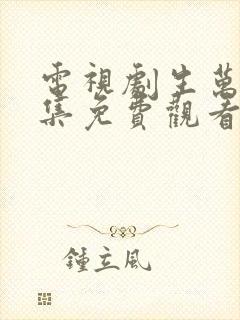 電視劇生萬
集免費觀看
鍾立風